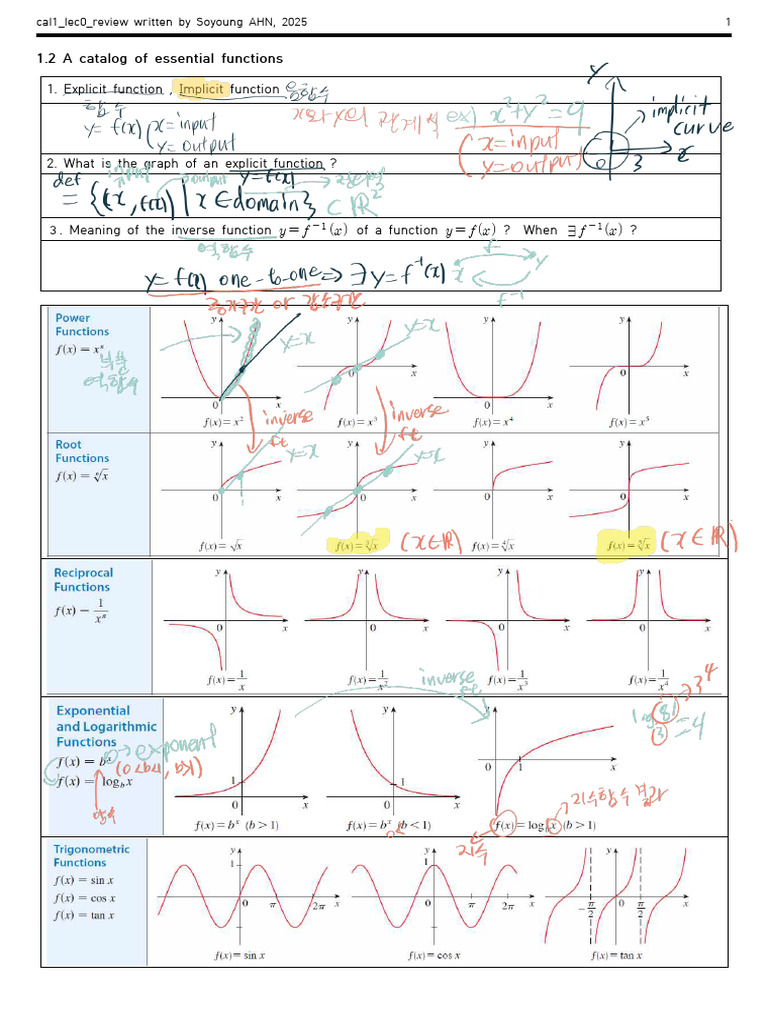 cal1_lec0_review written by Soyoung AHN, 2025 1
1.2 A catalog of essential functions
1. Explicit function , Implicit function 음함수
함수
y = f(x) ( x = input
y = output
x와 y의 관계식 ex) x²+y²=9
( x = input
y = output )
y
implicit curve
0 3 x
2. What is the graph of an explicit function ?
def input output y=f(x)
= {(x, f(x)) | x ∈ domain} ⊂ ℝ²
3. Meaning of the inverse function y=f⁻¹(x) of a function y=f(x) ? When ∃f⁻¹(x) ?
역함수
y = f(x) one-to-one ⇒ ∃ y = f⁻¹(x)
x f y
f⁻¹
증가구간 or 감소구간
Power Functions
f(x) = xⁿ
부분 역함수
y y y y
y=x y=x
0 x 0 x 0 x 0 x
f(x)=x² f(x)=x³ f(x)=x⁴ f(x)=x⁵
inverse ft inverse ft
Root Functions
f(x) = ⁿ√x
y y y y
y=x y=x
1
0 x 0 x 0 x 0 x
f(x)=√x f(x)=³√x (x∈ℝ) f(x)=⁴√x f(x)=⁵√x (x∈ℝ)
Reciprocal Functions
f(x) = 1/xⁿ
y y y y
0 x 0 x 0 x 0 x
f(x)=1/x f(x)=1/x² f(x)=1/x³ f(x)=1/x⁴
inverse ft
Exponential and Logarithmic Functions
f(x) = bˣ → exponent
(0<b<1, b>1)
f(x) = log_b x
y y y
1 1
0 x 0 x 0 1 x
log₃ 81 = 4
→ 3⁴
f(x)=bˣ (b>1) f(x)=bˣ (b<1) f(x)=log_b x (b>1)
0<
지수함수 결과
지수
Trigonometric Functions
f(x) = sin x
f(x) = cos x
f(x) = tan x
y y y
1 1
0 π 2π x 0 π 2π x -π/2 0 π/2 x
f(x)=sin x f(x)=cos x f(x)=tan x